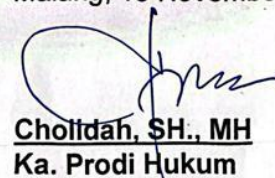 Malang,
Cholidah, SH., MH
Ka. Prodi Hukum